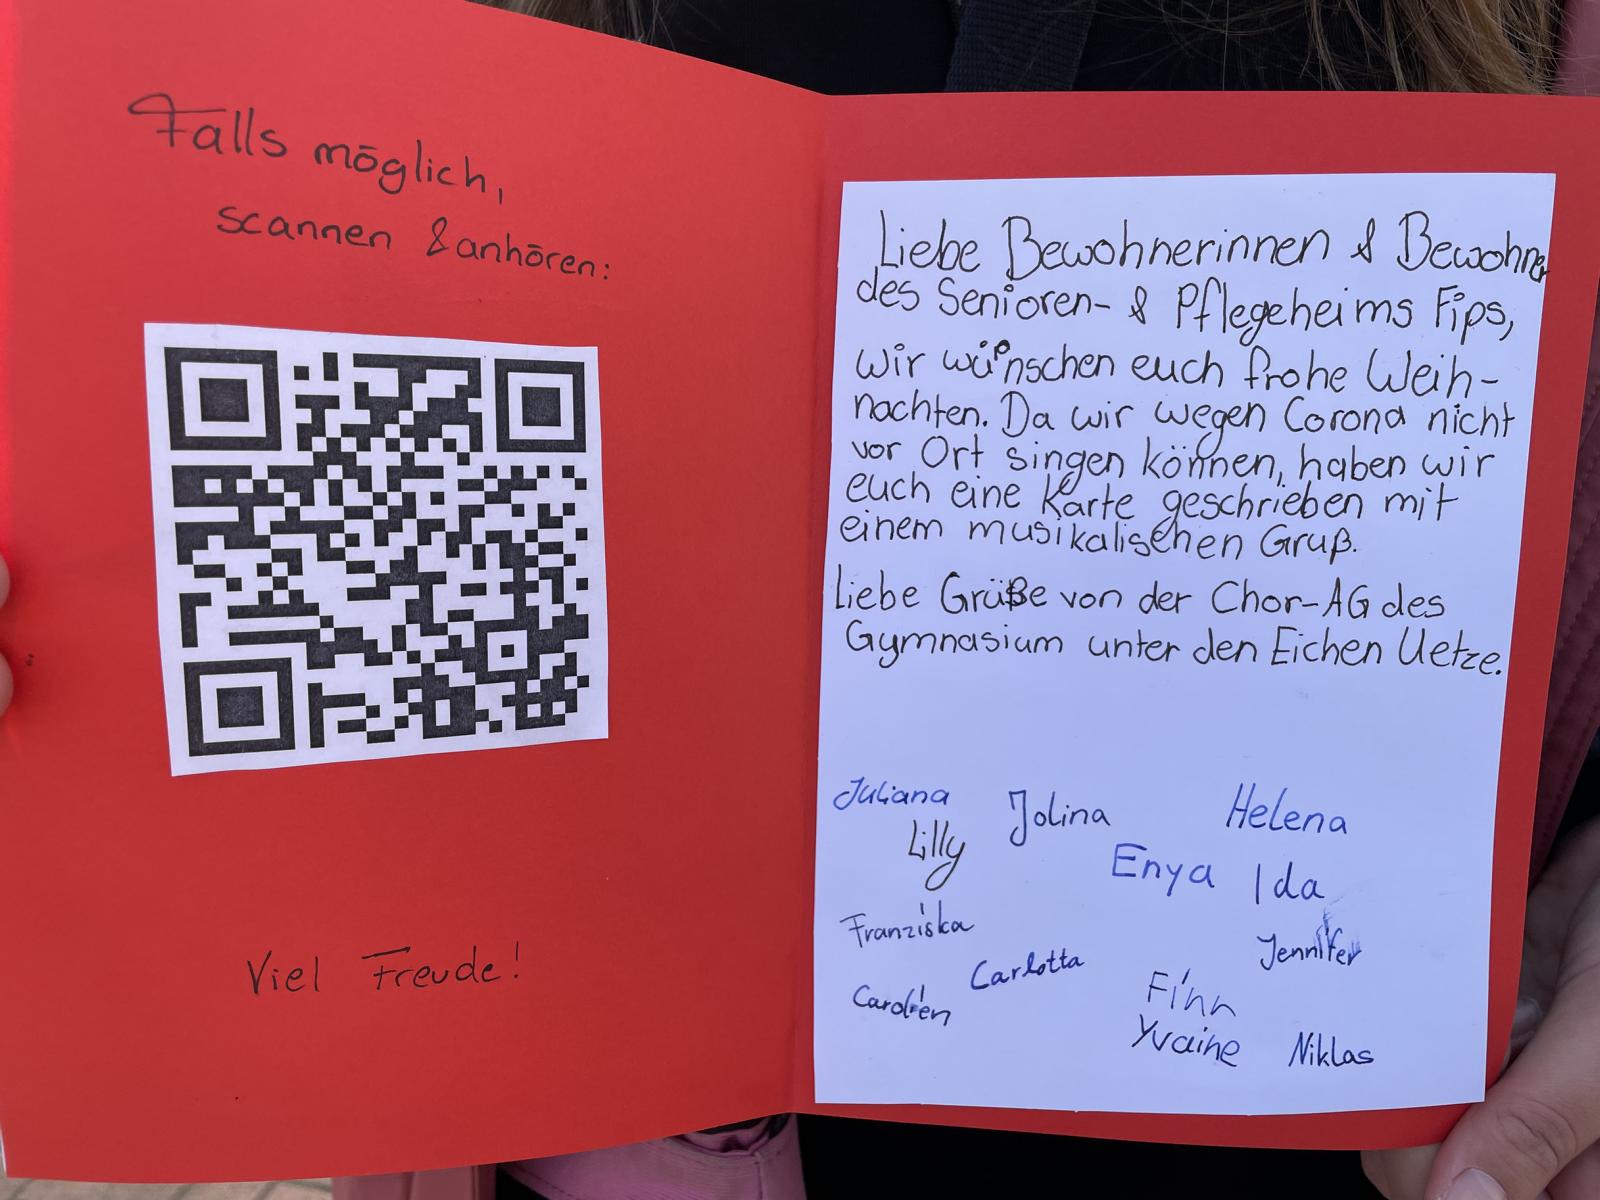 Falls möglich,
scannen & anhören:
Viel Freude!
Liebe Bewohnerinnen & Bewohner
des Senioren- & Pflegeheims Fips,
wir wünschen euch frohe Weih-
nachten. Da wir wegen Corona nicht
vor Ort singen können, haben wir
euch eine Karte geschrieben mit
einem musikalischen Gruß.
Liebe Grüße von der Chor-AG des
Gymnasium unter den Eichen Uetze.
Juliana Jolina Helena
Lilly Enya Ida
Franziska Jennifer
Carlotta
Carolien Finn
Yvaine Niklas